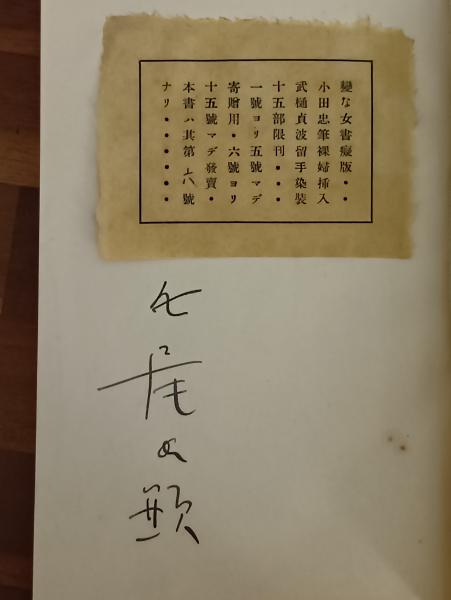 變な女書癡版・・
小田忠筆裸婦挿入
武樋貞波留手染裝
十五部限刊・・・
一號ヨリ五號マデ
寄贈用・六號ヨリ
十五號マデ發賣・
本書ハ其第六號
ナリ・・・・・・